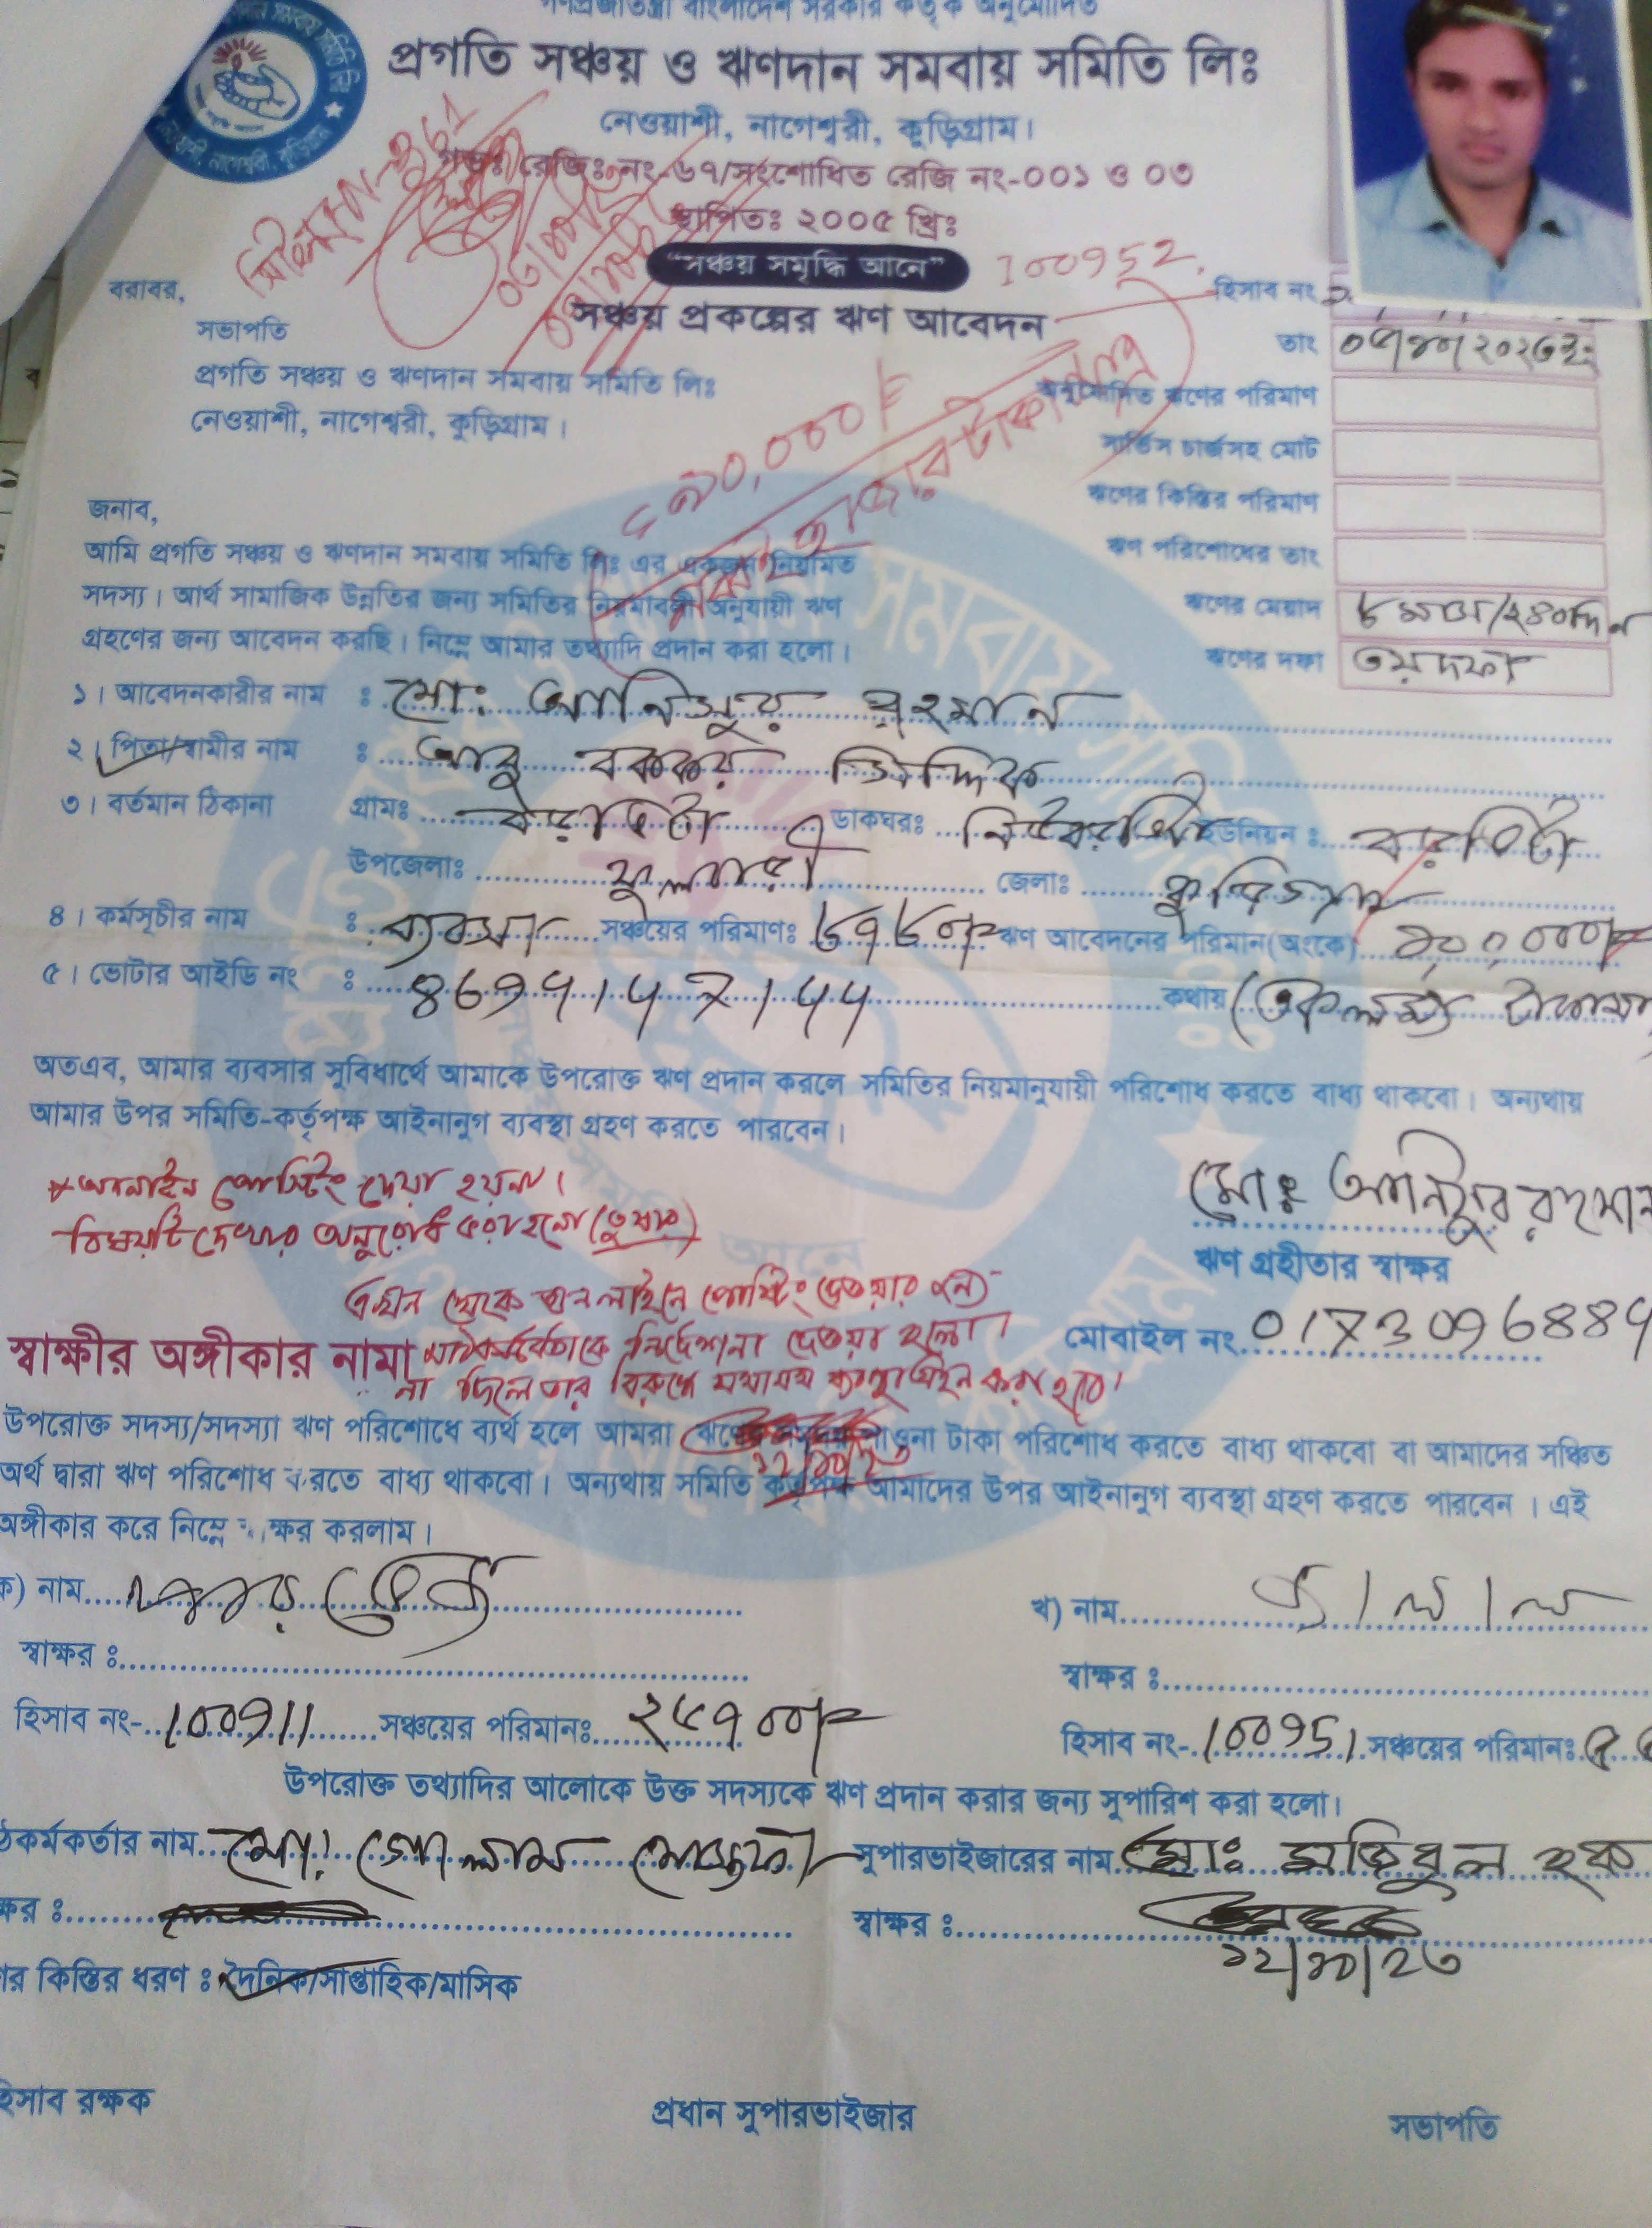 গণপ্রজাতন্ত্রী বাংলাদেশ সরকার কর্তৃক অনুমোদিত
প্রগতি সঞ্চয় ও ঋণদান সমবায় সমিতি লিঃ
নেওয়াশী, নাগেশ্বরী, কুড়িগ্রাম।
রেজিঃ নং-৬৭/সংশোধিত রেজি নং-০০১ ও ০৩
স্থাপিতঃ ২০০৫ খ্রিঃ
"সঞ্চয় সমৃদ্ধি আনে"
100952
সঞ্চয় প্রকল্পের ঋণ আবেদন
হিসাব নং
তাং
বরাবর,
সভাপতি
প্রগতি সঞ্চয় ও ঋণদান সমবায় সমিতি লিঃ
নেওয়াশী, নাগেশ্বরী, কুড়িগ্রাম।
অনুমোদিত ঋণের পরিমাণ
সার্ভিস চার্জসহ মোট
ঋণের কিস্তির পরিমাণ
ঋণ পরিশোধের তাং
ঋণের মেয়াদ ৮ মাস/২৪০দিন
ঋণের দফা ৩য় দফা
জনাব,
আমি প্রগতি সঞ্চয় ও ঋণদান সমবায় সমিতি লিঃ এর একজন নিয়মিত
সদস্য। আর্থ সামাজিক উন্নতির জন্য সমিতির নিয়মাবলী অনুযায়ী ঋণ
গ্রহণের জন্য আবেদন করছি। নিম্নে আমার তথ্যাদি প্রদান করা হলো।
১। আবেদনকারীর নাম : মোঃ আনিসুর রহমান
২। পিতা/স্বামীর নাম : আবু বককর সিদ্দিক
৩। বর্তমান ঠিকানা গ্রামঃ ডাকঘরঃ ইউনিয়ন :
উপজেলাঃ ফুলবাড়ী জেলাঃ কুড়িগ্রাম
৪। কর্মসূচীর নাম : ব্যবসা সঞ্চয়ের পরিমাণঃ ৮৭৮০/= ঋণ আবেদনের পরিমান(অংকে) ১,০০,০০০/=
৫। ভোটার আইডি নং : কথায় (একলক্ষ টাকা
অতএব, আমার ব্যবসার সুবিধার্থে আমাকে উপরোক্ত ঋণ প্রদান করলে সমিতির নিয়মানুযায়ী পরিশোধ করতে বাধ্য থাকবো। অন্যথায়
আমার উপর সমিতি-কর্তৃপক্ষ আইনানুগ ব্যবস্থা গ্রহণ করতে পারবেন।
অনলাইন পোস্টিং দেয়া হয়না।
বিষয়টি দেখার অনুরোধ করা হলো
মোঃ আনিসুর রহমান
ঋণ গ্রহীতার স্বাক্ষর
এখন থেকে অনলাইনে পোষ্টিং দেওয়ার জন্য
মাঠকর্মকর্তাকে নির্দেশনা দেওয়া হলো।
না দিলে তার বিরুদ্ধে যথাযথ ব্যবস্থা গ্রহন করা হবে।
মোবাইল নং
স্বাক্ষীর অঙ্গীকার নামা
উপরোক্ত সদস্য/সদস্যা ঋণ পরিশোধে ব্যর্থ হলে আমরা পাওনা টাকা পরিশোধ করতে বাধ্য থাকবো বা আমাদের সঞ্চিত
অর্থ দ্বারা ঋণ পরিশোধ করতে বাধ্য থাকবো। অন্যথায় সমিতি কর্তৃপক্ষ আমাদের উপর আইনানুগ ব্যবস্থা গ্রহণ করতে পারবেন। এই
অঙ্গীকার করে নিম্নে স্বাক্ষর করলাম।
ক) নাম
খ) নাম
স্বাক্ষর :
স্বাক্ষর :
হিসাব নং- 100911 সঞ্চয়ের পরিমানঃ ২৫৭০০/=
হিসাব নং- 100951 সঞ্চয়ের পরিমানঃ
উপরোক্ত তথ্যাদির আলোকে উক্ত সদস্যকে ঋণ প্রদান করার জন্য সুপারিশ করা হলো।
ঠকর্মকর্তার নাম মোঃ গোলাম মোস্তফা
সুপারভাইজারের নাম
ক্ষর :
স্বাক্ষর :
১২/১০/২৩
কিস্তির ধরণ : দৈনিক/সাপ্তাহিক/মাসিক
হিসাব রক্ষক
প্রধান সুপারভাইজার
সভাপতি